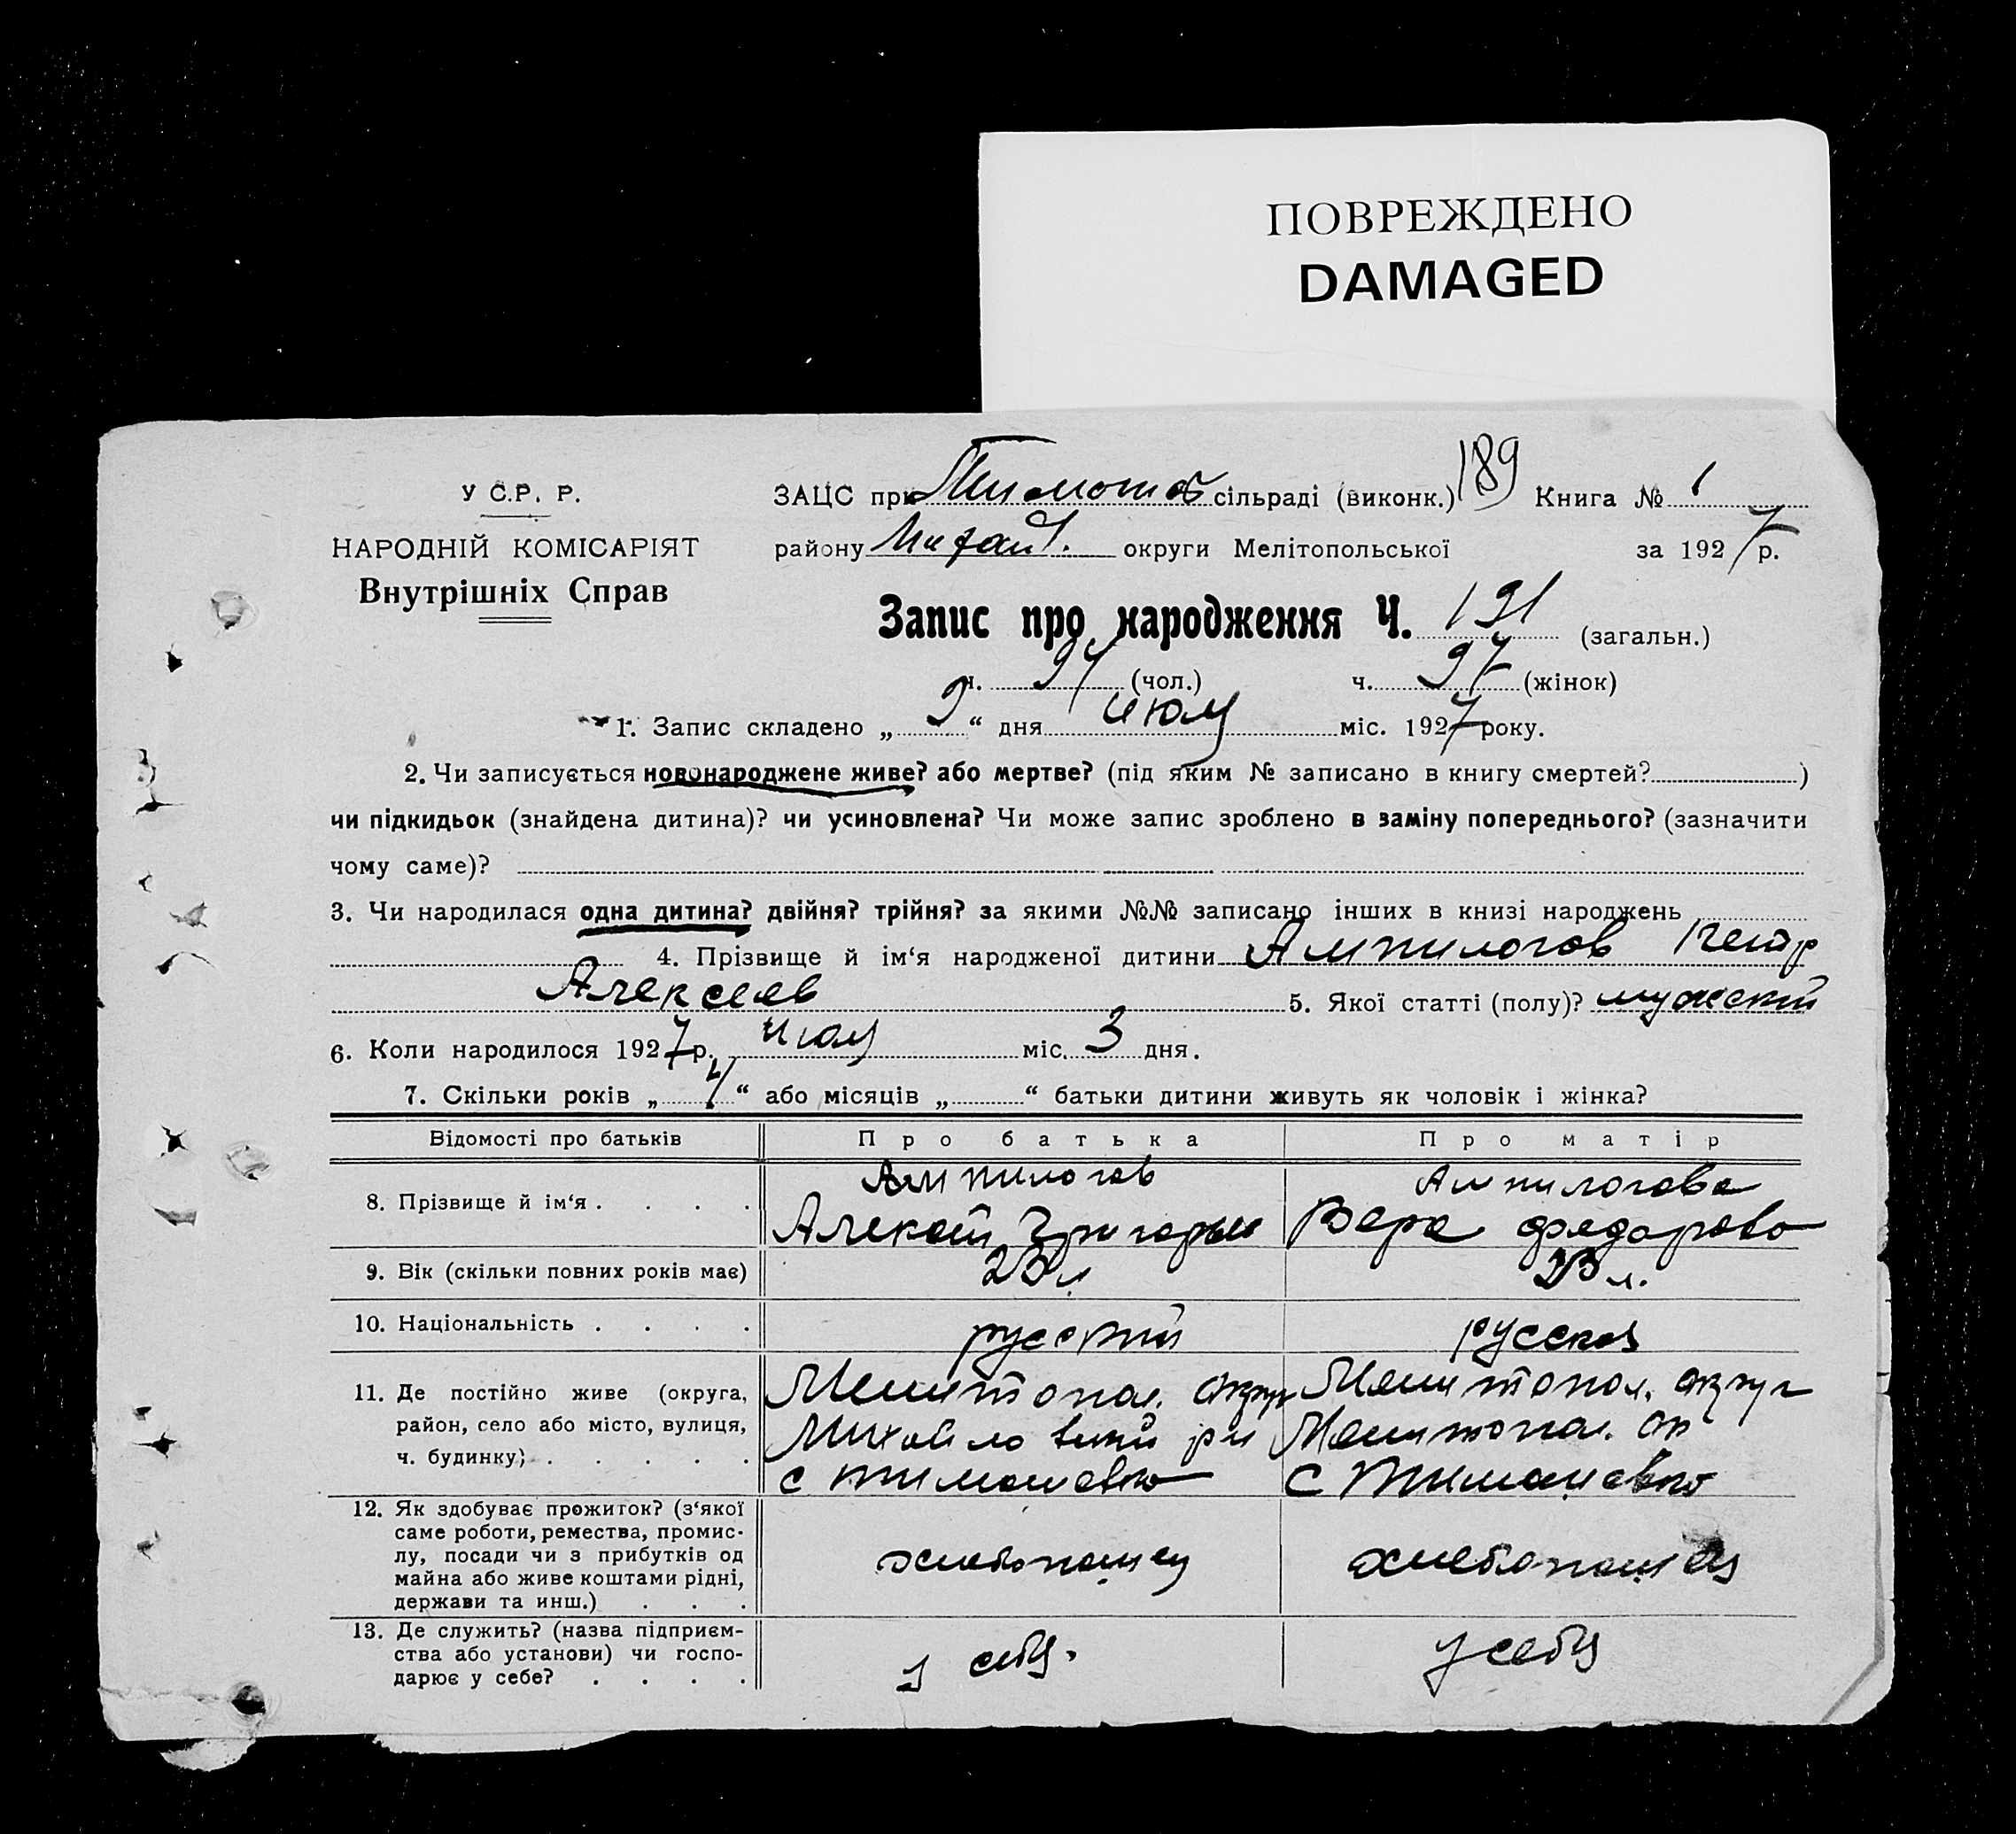 ПОВРЕЖДЕНО
DAMAGED
У С.Р. Р.
НАРОДНІЙ КОМІСАРІЯТ
Внутрішніх Справ
ЗАЦС при сільраді (виконк.) 189 Книга № 1
району округи Мелітопольської за 1927 р.
Запис про народження Ч. 191 (загальн.)
ч. 94 (чол.) ч. 97 (жінок)
1. Запис складено „ 9 “ дня июля міс. 1927 року.
2. Чи записується новонароджене живе? або мертве? (під яким № записано в книгу смертей? )
чи підкидьок (знайдена дитина)? чи усиновлена? Чи може запис зроблено в заміну попереднього? (зазначити
чому саме)?
3. Чи народилася одна дитина? двійня? трійня? за якими №№ записано інших в книзі народжень
4. Прізвище й ім‘я народженої дитини Ампилогов Петр
Алексеев 5. Якої статті (полу)? мужской
6. Коли народилося 1927 р. июля міс. 3 дня.
7. Скільки років „ “ або місяців „ “ батьки дитини живуть як чоловік і жінка?
Відомості про батьків Про батька Про матір
8. Прізвище й ім‘я . . . . Ампилогов Ампилогова
Алексей Григорьев Вера Федорова
9. Вік (скільки повних років має) 23 л 23 л.
10. Національність . . . . русский русская
11. Де постійно живе (округа, Мелитопол. округ Мелитопол. округ
район, село або місто, вулиця, Михайловский р н Мелитопол. ок
ч. будинку) . . . . . с Тимошевка с Тимошевка
12. Як здобуває прожиток? (з‘якої
саме роботи, ремества, промис-
лу, посади чи з прибутків од хлебопашец хлебопашец
майна або живе коштами рідні,
держави та инш.) . . .
13. Де служить? (назва підприєм-
ства або установи) чи госпо- у себя. у себя
дарює у себе? . . . .